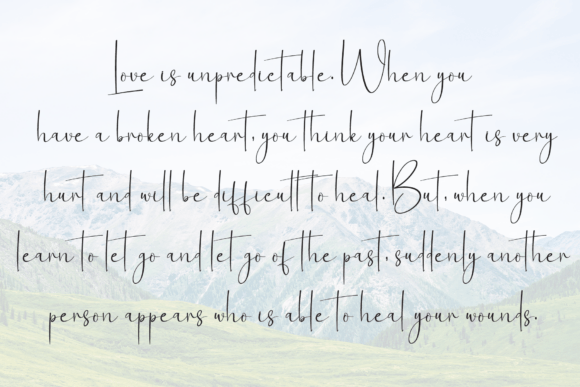 Love is unpredictable. When you
have a broken heart, you think your heart is very
hurt and will be difficult to heal. But, when you
learn to let go and let go of the past, suddenly another
person appears who is able to heal your wounds.